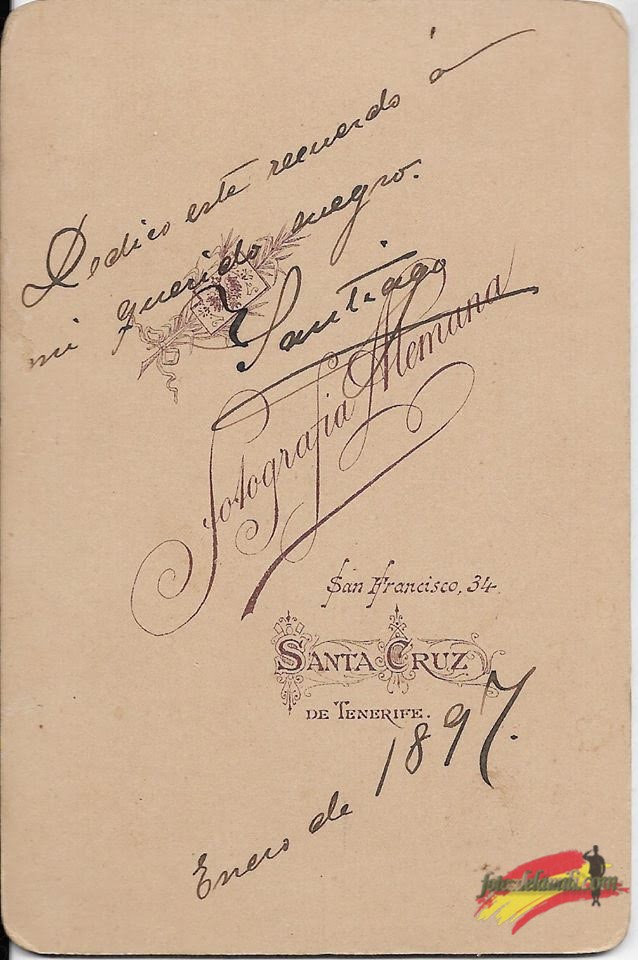 Dedico este recuerdo á
mi querido suegro.
Santiago
Fotografia Alemana
San Francisco, 34
SANTA CRUZ
DE TENERIFE.
Enero de 1897.
fotosdelamili.com